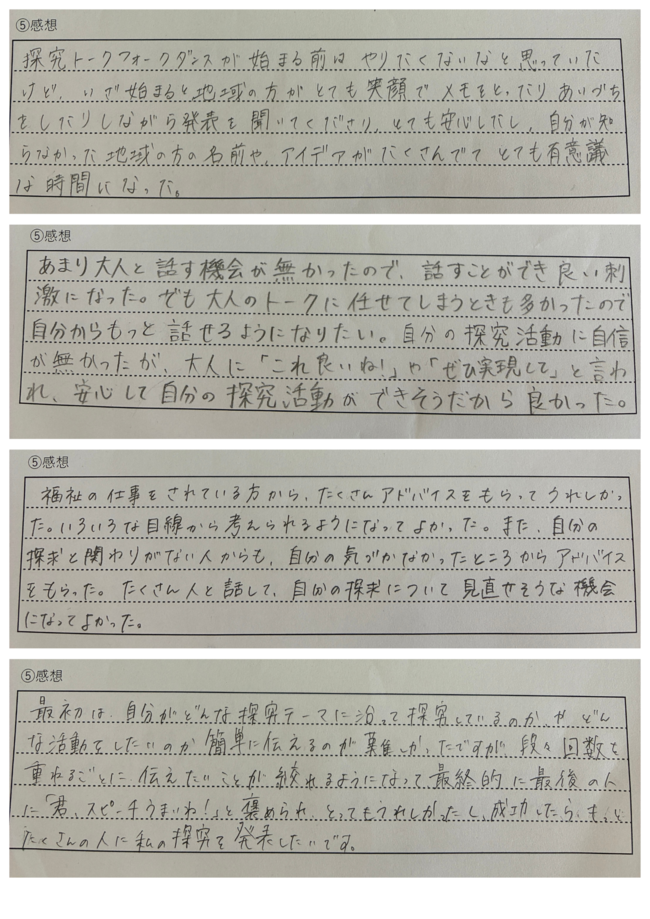 ⑤感想
探究トークフォークダンスが始まる前はやりたくないなと思っていた
けど、いざ始まると地域の方がとても笑顔でメモをとったりあいづち
をしたりしながら発表を聞いてくださり、とても安心したし、自分が知
らなかった地域の方の名前や、アイデアがたくさんでてとても有意議
な時間になった。
⑤感想
あまり大人と話す機会が無かったので、話すことができ良い刺
激になった。でも大人のトークに任せてしまうときも多かったので
自分からもっと話せるようになりたい。自分の探究活動に自信
が無かったが、大人に「これ良いね!」や「ぜひ実現して」と言わ
れ、安心して自分の探究活動ができそうだから良かった。
⑤感想
福祉の仕事をされている方から、たくさんアドバイスをもらってうれしかっ
た。いろいろな目線から考えられるようになってよかった。また、自分の
探求と関わりがない人からも、自分の気づかなかったところからアドバイス
をもらった。たくさん人と話して、自分の探求について見直せそうな機会
になってよかった。
⑤感想
最初は、自分がどんな探究テーマに沿って探究しているのか、や、どん
な活動をしたいのか簡単に伝えるのが難しかったですが、段々回数を
重ねるごとに、伝えたいことが絞れるようになって最終的に最後の人
に「君、スピーチうまいね!」と褒められ、とってもうれしかったし、成功したら、もっと
たくさんの人に私の探究を発表したいです。